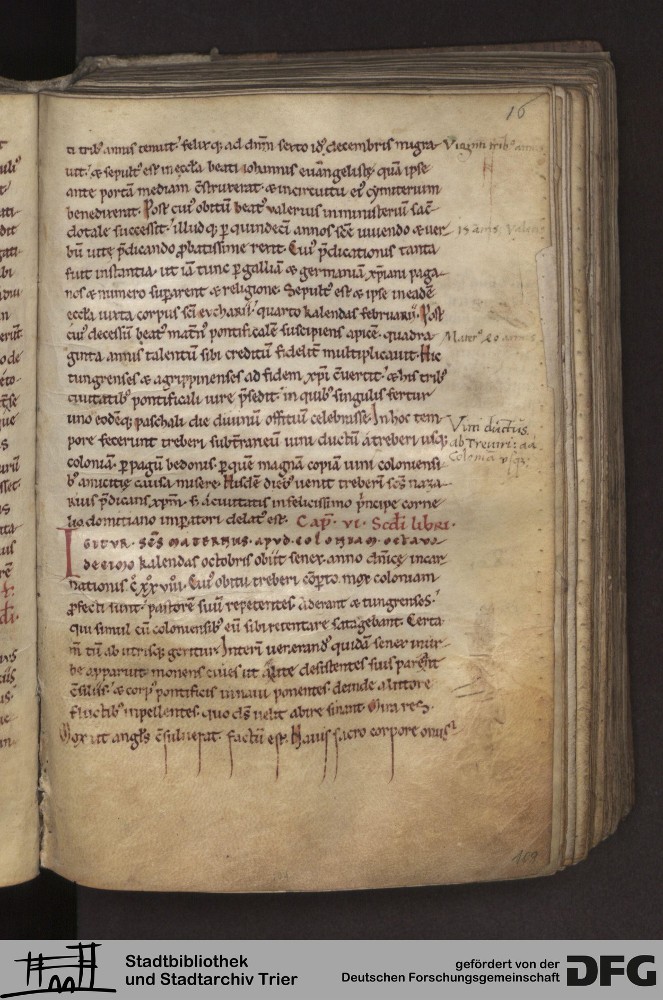 16
ti trib; annis tenuit. felixq; ad dñm sexto id; decembris migra
uit. & sepult' est in eccl̃a beati iohannis euangelistę quā ipse
ante portā mediam c̃struxerat. & in circuitu ei' cymiterium
benedixerat. Post cui' obitū beat' valerius in ministeriū sac̃
dotale successit. illud q; p quindeci annos sc̃e uiuendo & uer
bū uitę p̃dicando p̱batissime rexit. Cui' p̃dicationis tanta
fuit instantia. ut iā tunc p galliā & germaniā xp̃iani paga
nos & numero suparent & religione. Sepult' est & ipse in eadē
eccl̃a iuxta corpus sc̃i eucharii. quarto kalendas februarii. Post
cui' decessū beat' mat̃n' pontificalē suscipiens apicē. quadra
ginta annis talentū sibi creditū fidelit̃ multiplicauit. Hic
tungrenses & agrippinenses ad fidem xp̃i c̃uertit. & his trib;
ciuitatib; pontificali iure p̃sedit. in quib; singulis fertur
uno eodēq; paschali die diuinū offitiū celebrasse. In hoc tem
pore fecerunt treberi subt̃raneū uini ductū a treberi usq;
coloniā. p pagū bedonis. p quē magnā copiā uini coloniensi
b; amicitię causa misere. Hisdē dieb; uenit treberī sc̃s naza
rius p̃dicans xp̃m. & a ciuitatis infelicissimo p̃ncipe corne
lio domitiano imp̃atori delat' est. Cap̃. VI. Sc̃di libri.
IGITVR. SC̃S MATERNUS. APVD COLONIAM. OCTAVO
DECIMO kalendas octobris obiit senex. anno dñicę incar
nationis C̃ XX VIII. Cui' obitu treberi cõpto. mox coloniam
p̱fecti sunt. pastorē suū repetentes. Aderant & tungrenses.
qui simul cū coloniensib; eū sibi retentare satagebant. Certa
m̃ tū ab utrisq; geritur. Interī uenerand' quidā senex in ur
be apparuit. monens ciues ut a lite desistentes suis parerēt
c̃siliis. & corp' pontificis in naui ponentes. deinde a littore
fluctib; inpellentes. quo d̃s uelit abire sinant. Mira res.
Mox ut angl's c̃suluerat. factū est. Nauis sacro corpore onus
Viginti trib; annis
15 anis. Valeri
Matern' 40 annis
Vini ductus
ab Treviri: ad
Coloniā usq;
169
Stadtbibliothek
und Stadtarchiv Trier
gefördert von der
Deutschen Forschungsgemeinschaft
DFG